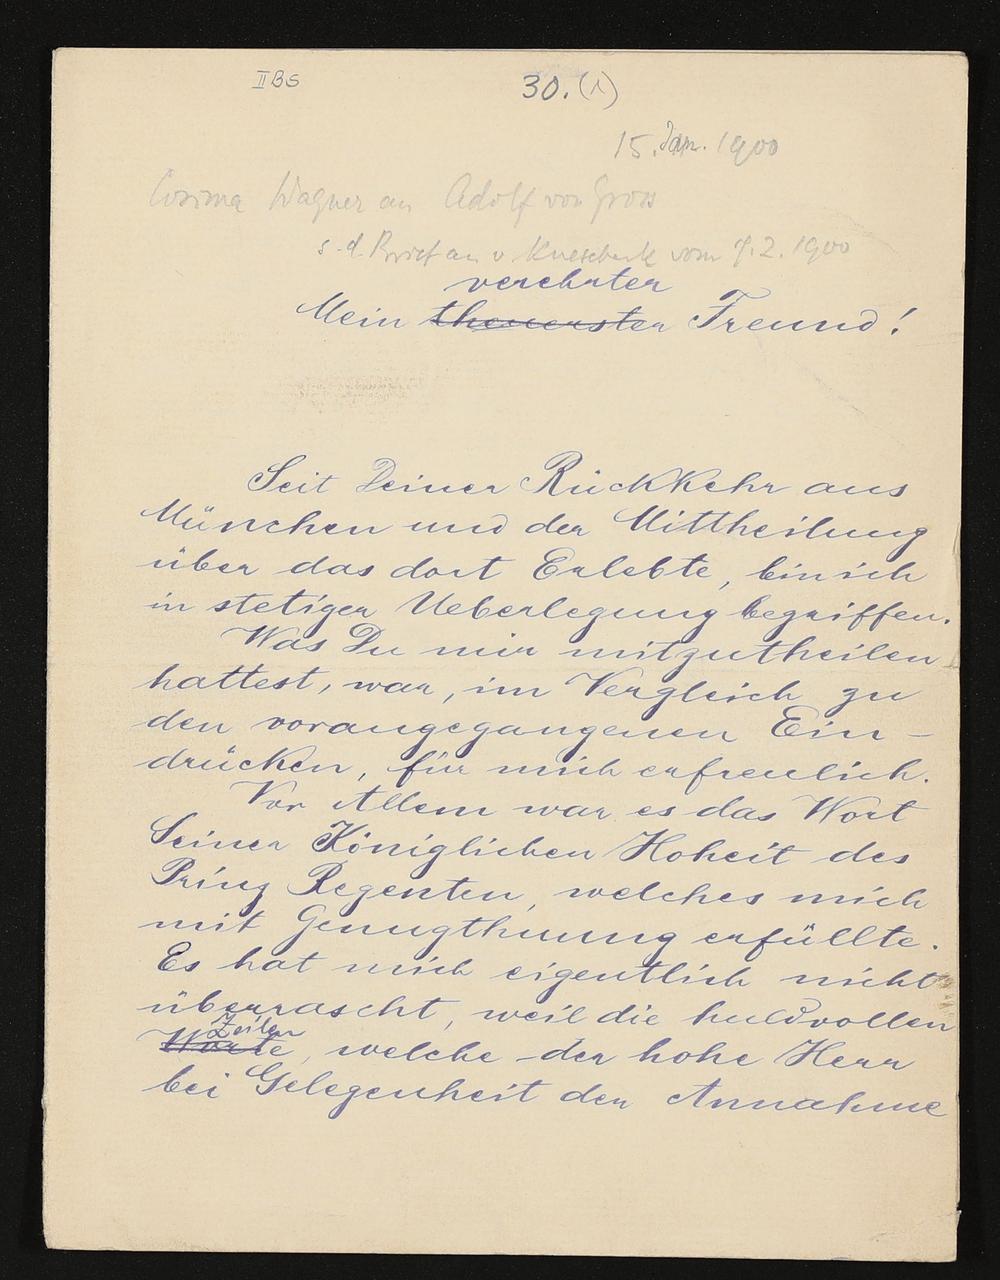 II BS
30. (1)
15. Jan. 1900
Cosima Wagner an Adolf von Gross
s. d. Brief an v Knesebeck vom 7.2.1900
verehrter
Mein theuerster Freund!
Seit Deiner Rückkehr aus
München und der Mittheilung
über das dort Erlebte, bin ich
in stetiger Ueberlegung begriffen.
Was Du mir mitzutheilen
hattest, war, im Vergleich zu
den vorangegangenen Ein-
drücken, für mich erfreulich.
Vor Allem war es das Wort
Seiner Königlichen Hoheit des
Prinz Regenten, welches mich
mit Genugthuung erfüllte.
Es hat mich eigentlich nicht
überrascht, weil die huldvollen
Zeilen
Worte, welche der hohe Herr
bei Gelegenheit der Annahme